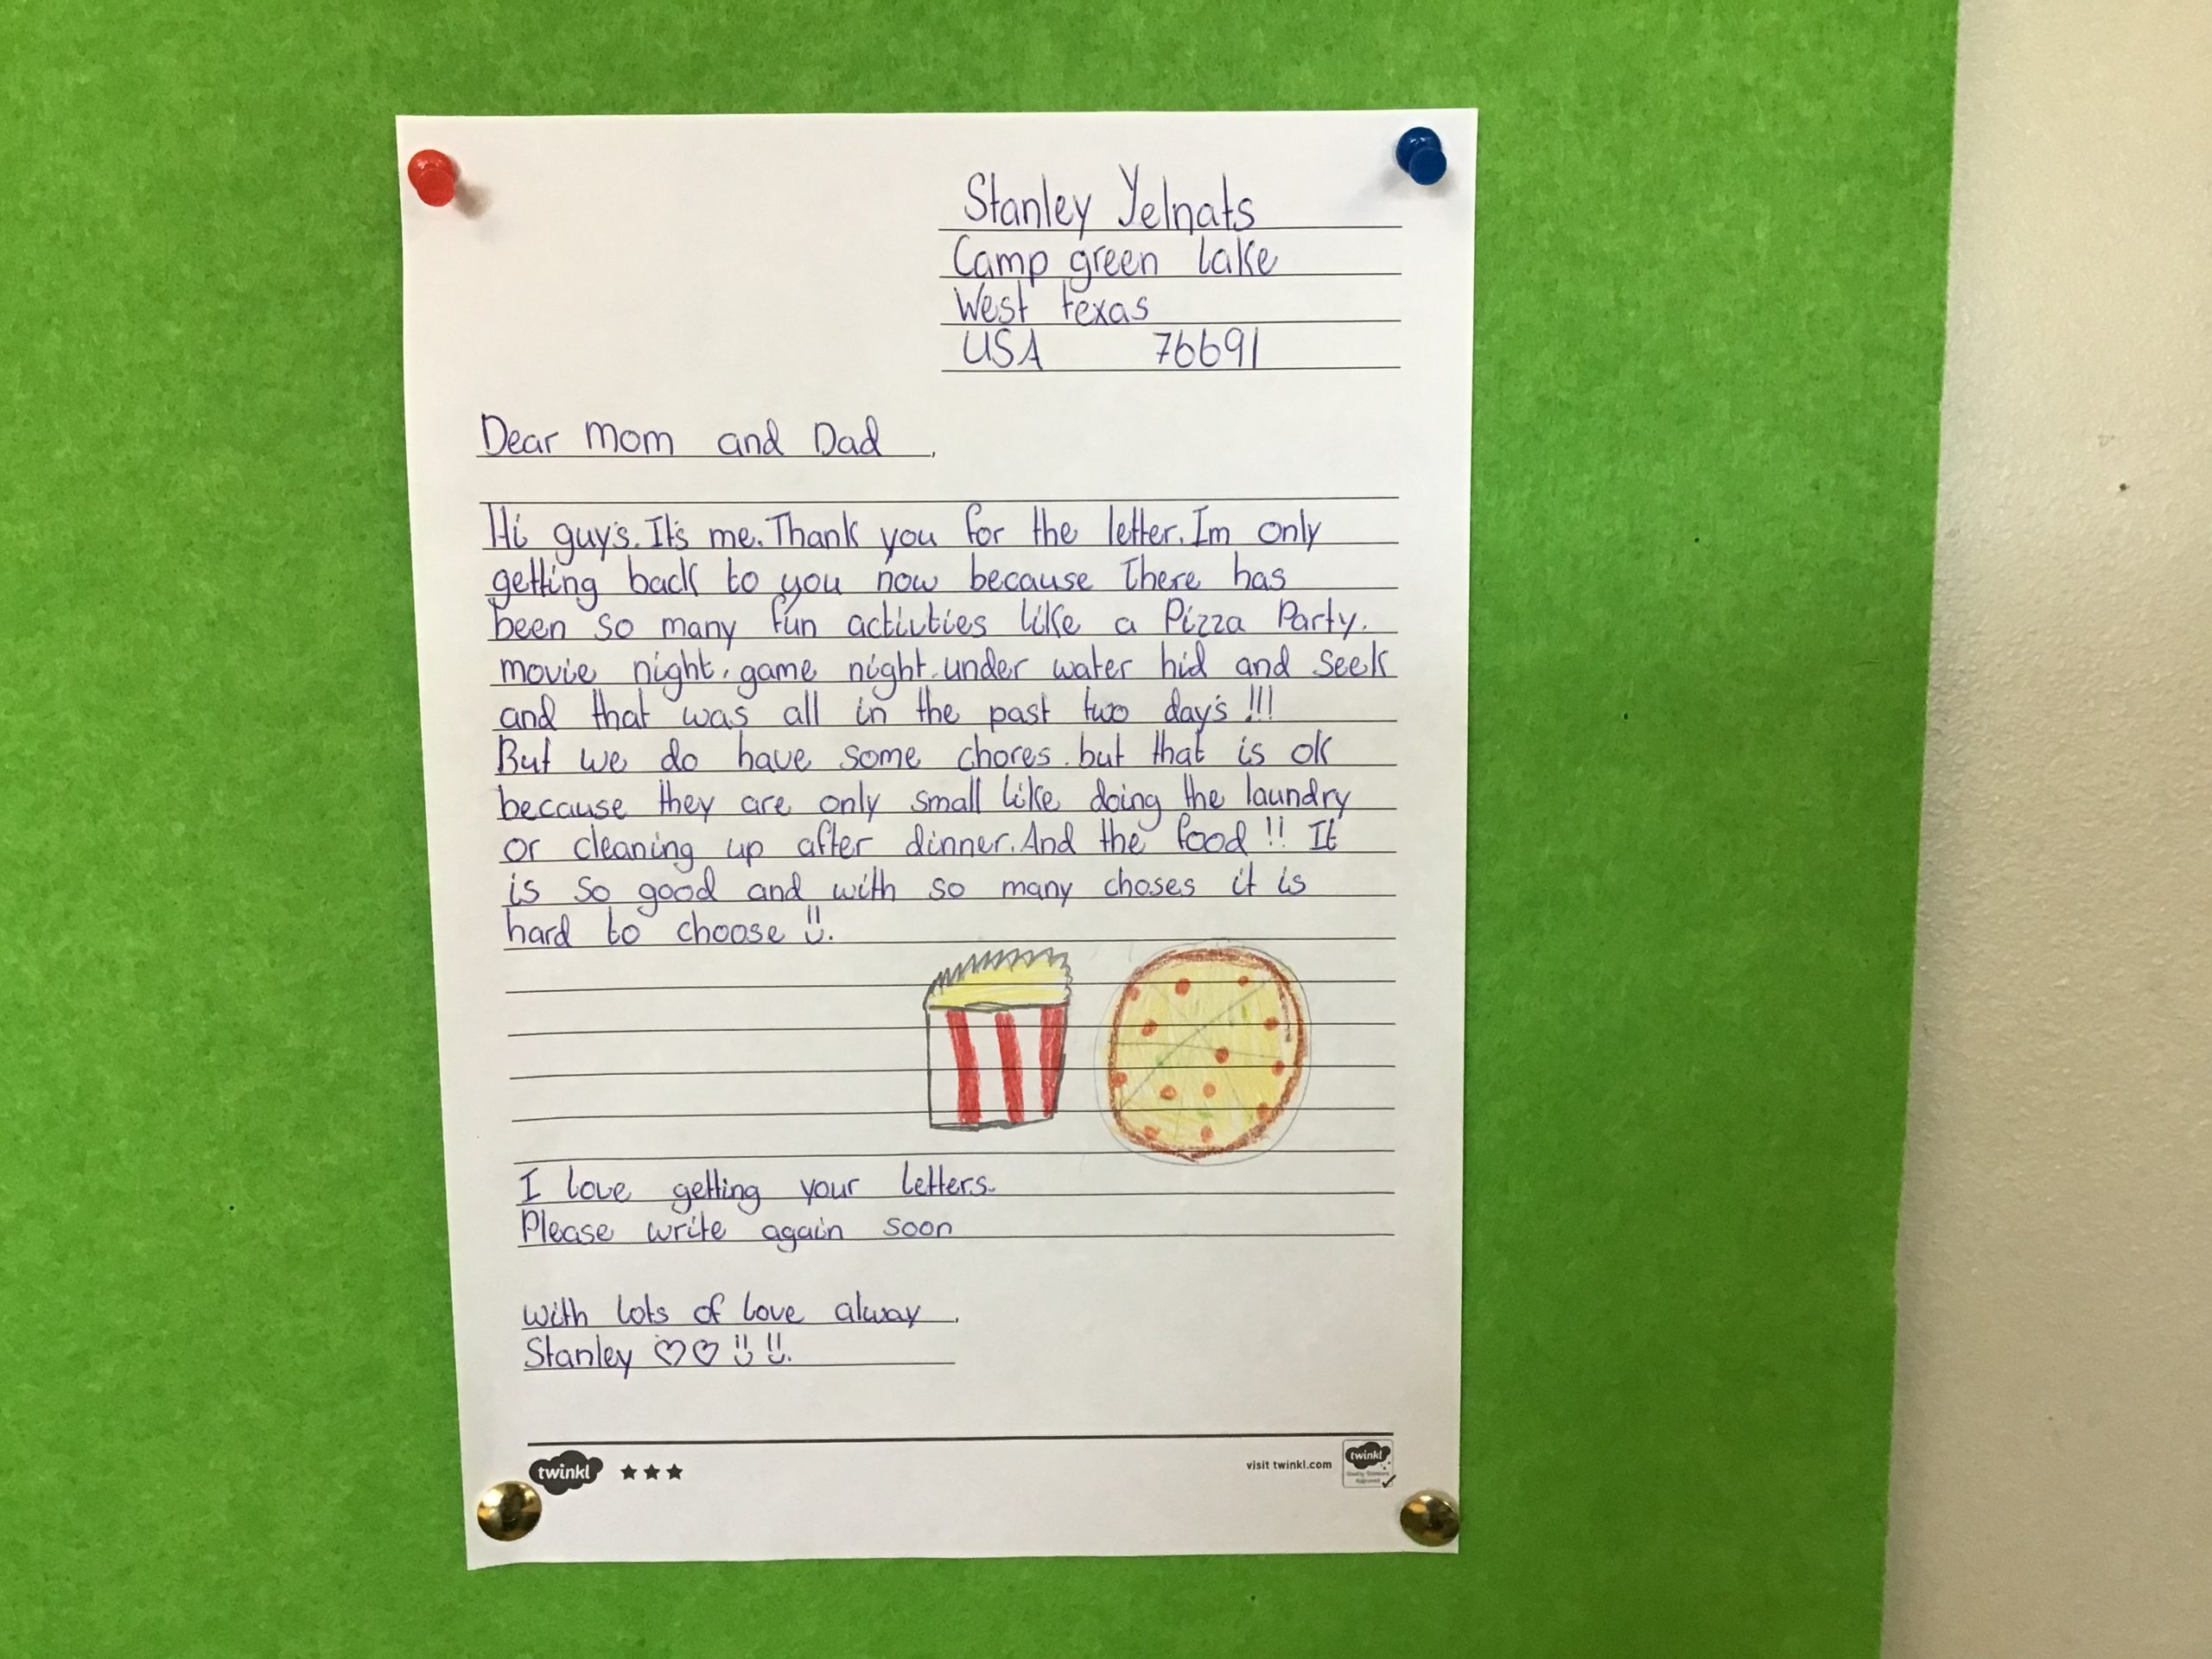 Stanley Yelnats
Camp green lake
West texas
USA 76691
Dear Mom and Dad ,
Hi guy's. It's me. Thank you for the letter. Im only
getting back to you now because there has
been so many fun activties like a Pizza Party.
movie night, game night. under water hid and seek
and that was all in the past two day's !!!
But we do have some chores. but that is ok
because they are only small like doing the laundry
or cleaning up after dinner. And the food !! It
is so good and with so many choses it is
hard to choose ü.
I love getting your letters.
Please write again soon
with lots of love alway ,
Stanley ♡♡ ü ü.
twinkl ★★★
visit twinkl.com
twinkl
Quality Standard
Approved